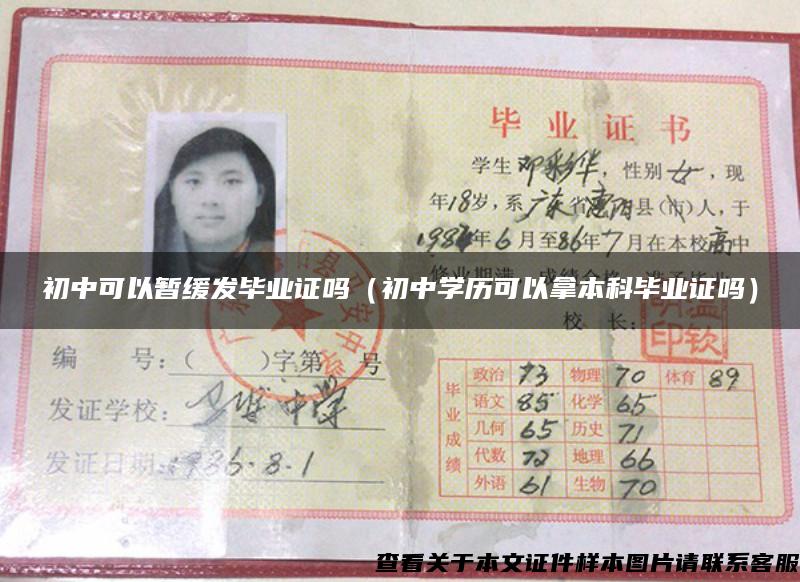 毕业证书
学生邓彩华，性别女，现
年18岁，系广东省惠阳县(市)人，于
1984年6月至86年7月在本校高中
修业期满，成绩合格，准予毕业
初中可以暂缓发毕业证吗（初中学历可以拿本科毕业证吗）
校 长：
印钦
编 号：（ ）字第 号
发证学校：
中学
发证日期：1986.8.1
毕业成绩
政治 73 物理 70 体育 89
语文 85 化学 65
几何 65 历史 71
代数 72 地理 66
外语 61 生物 70
查看关于本文证件样本图片请联系客服